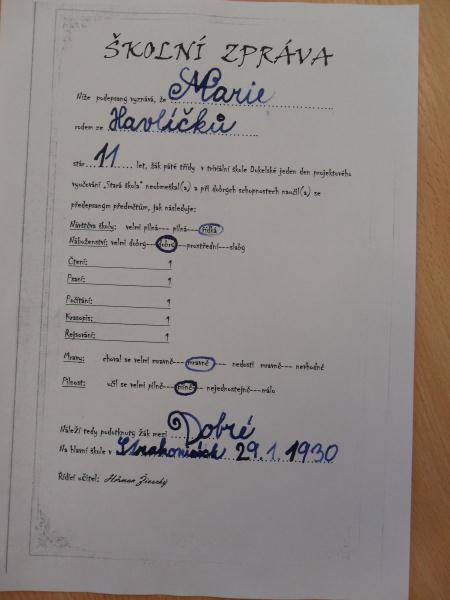 ŠKOLNÍ ZPRÁVA
Níže podepsaný vyznává, že Marie
rodem ze Havlíčků
stár 11 let, žák páté třídy v triviální škole Dukelské jeden den projektového
vyučování „Stará škola" neobmeškal(a) a při dobrých schopnostech naučil(a) se
předepsaným předmětům, jak následuje:
Návštěva školy: velmi pilná--- pilná--- řídká
Náboženství: velmi dobrý---dobrý---prostřední---slabý
Čtení: 1
Psaní: 1
Počítání: 1
Krasopis: 1
Rejsování: 1
Mravy: choval se velmi mravně--- mravně --- nedosti mravně--- nevhodně
Pilnost: učil se velmi pilně---pilně--- nejednostejně---málo
Náleží tedy podotknutý žák mezi Dobré
Na hlavní škole v Strakonicích 29.1.1930
Řídící učitel: